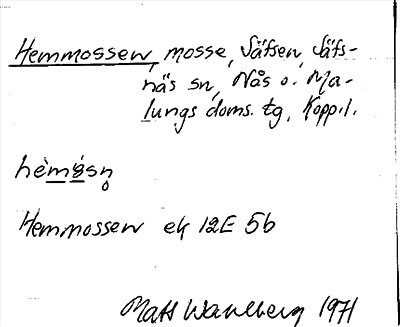 Hemmossen, mosse, Säfsen, Säfs-
näs sn, Nås o. Ma-
lungs doms. tg, Kopp.l.
hèmå̀sn̥
Hemmossen ek 12E 5b
Mats Wahlberg 1971